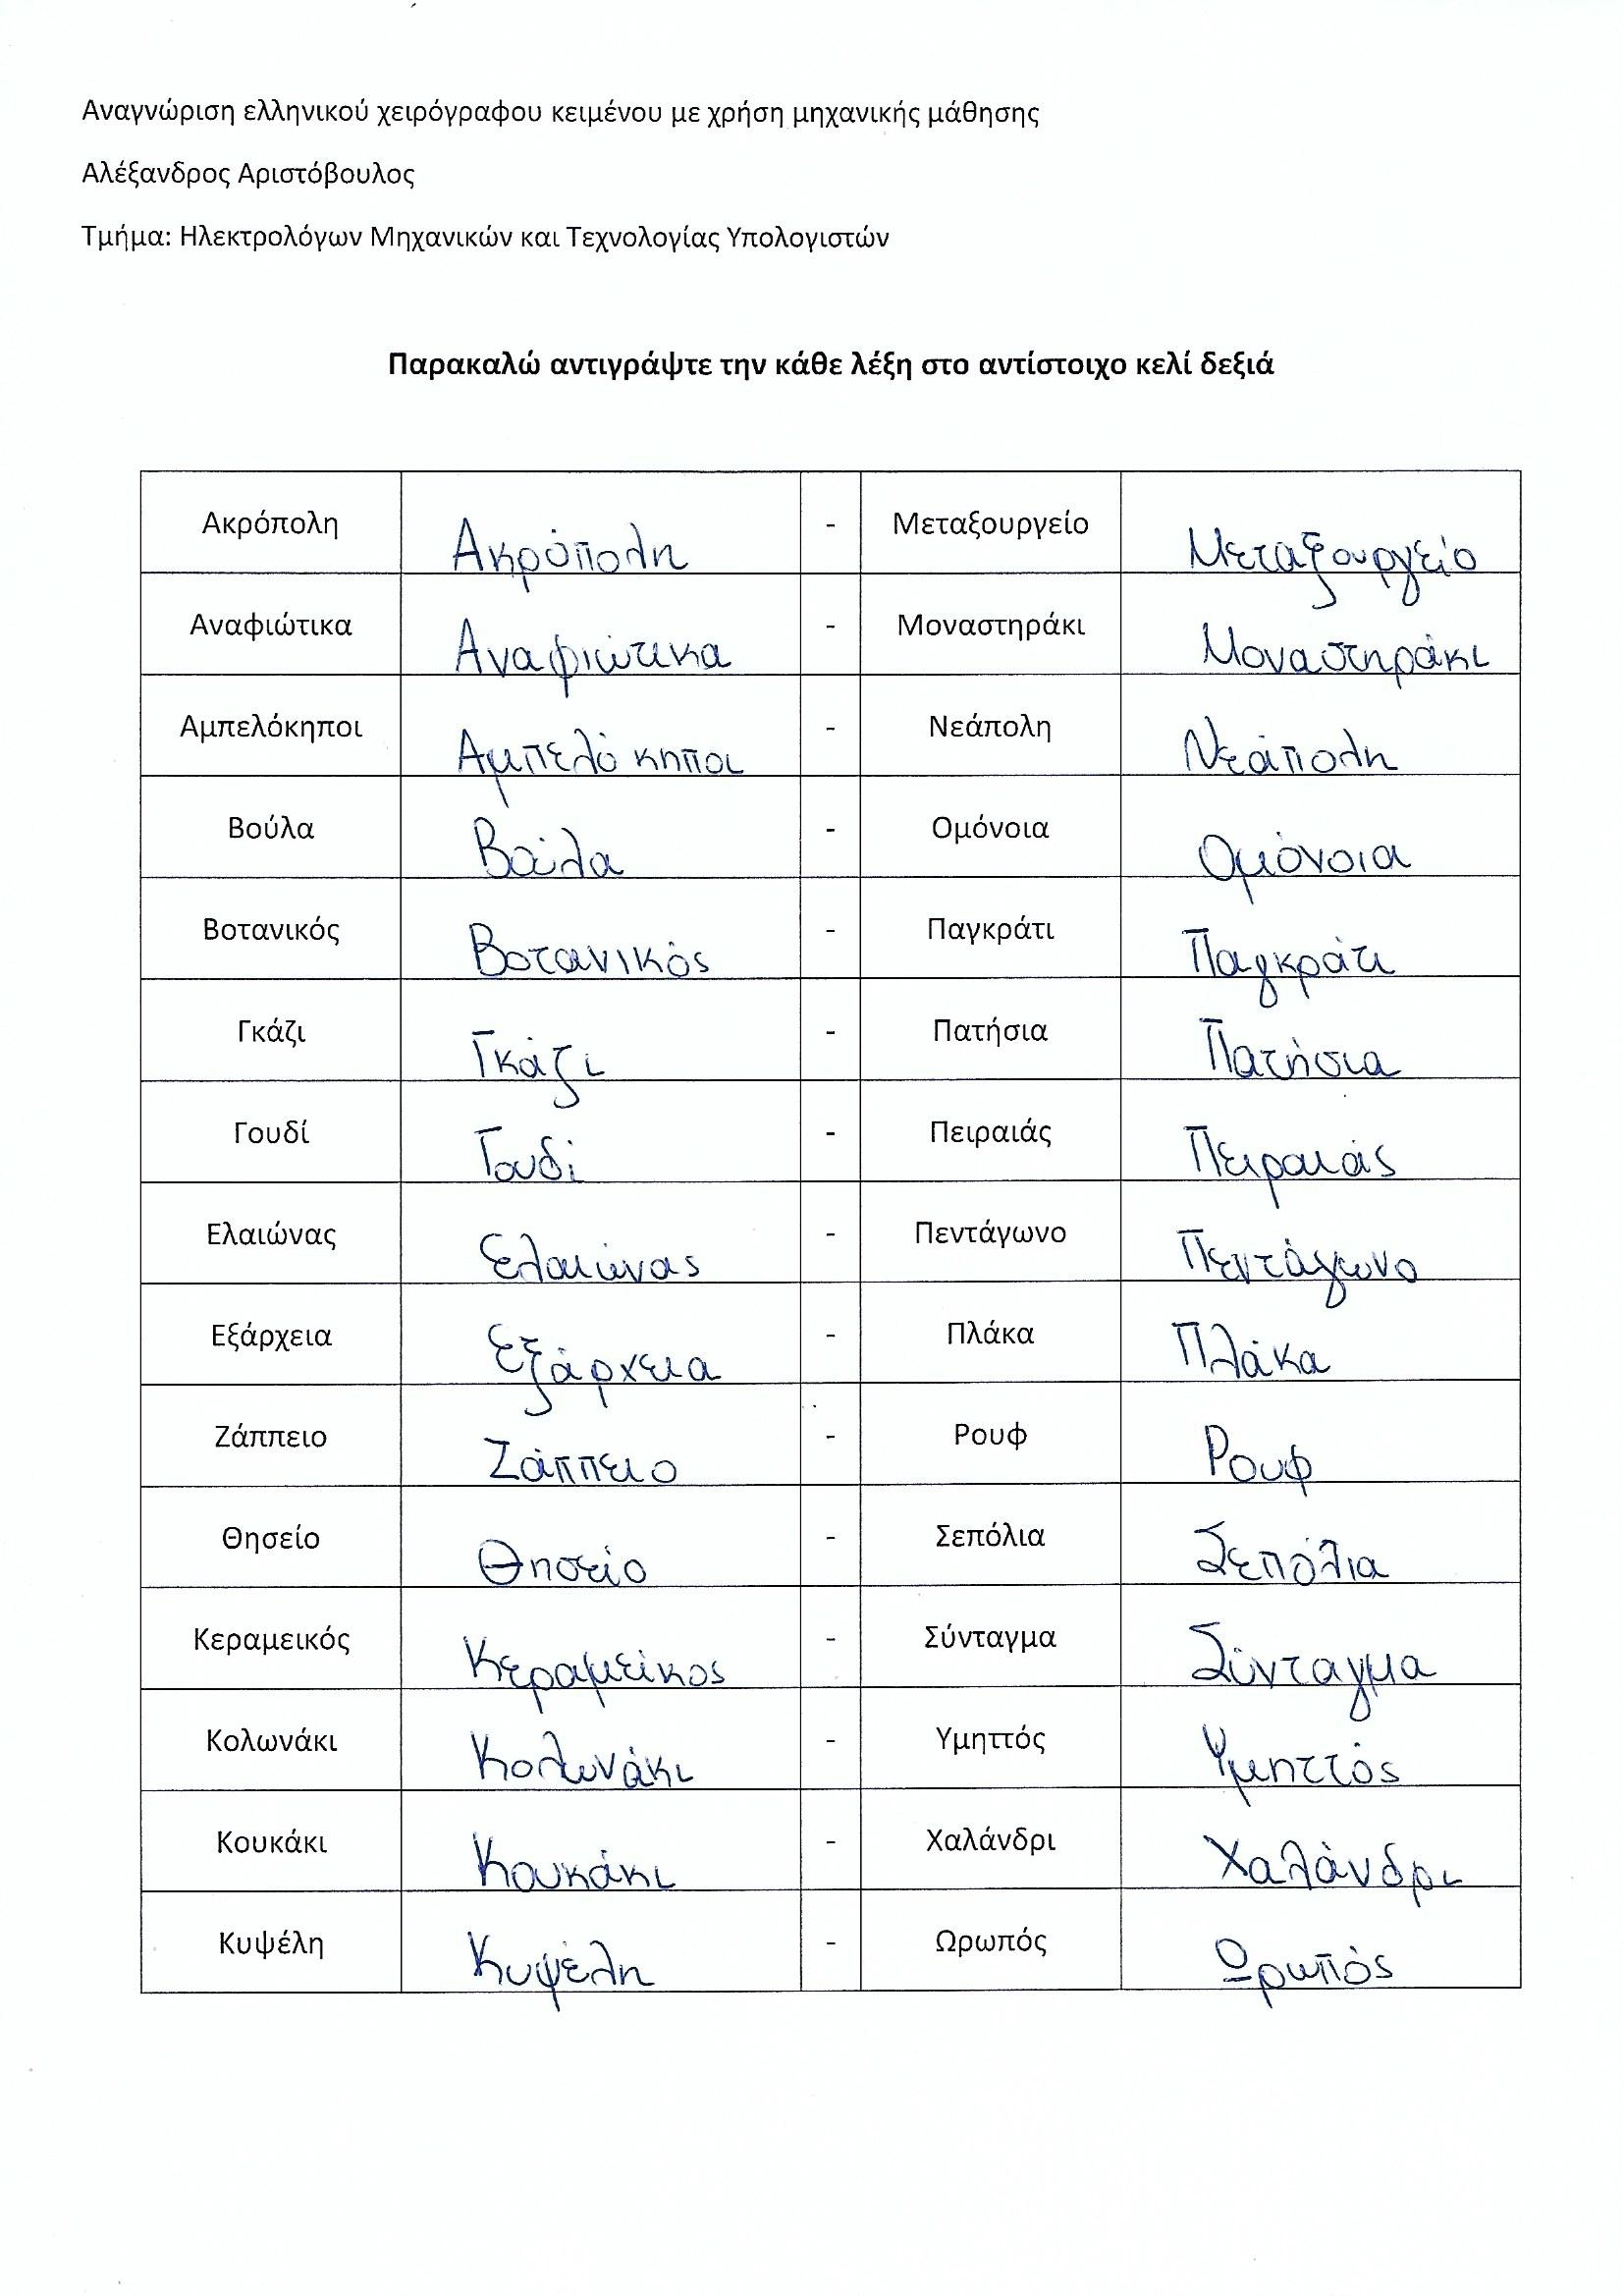 Αναγνώριση ελληνικού χειρόγραφου κειμένου με χρήση μηχανικής μάθησης
Αλέξανδρος Αριστόβουλος
Τμήμα: Ηλεκτρολόγων Μηχανικών και Τεχνολογίας Υπολογιστών
Παρακαλώ αντιγράψτε την κάθε λέξη στο αντίστοιχο κελί δεξιά
Ακρόπολη Ακρόπολη - Μεταξουργείο Μεταξουργείο
Αναφιώτικα Αναφιώτικα - Μοναστηράκι Μοναστηράκι
Αμπελόκηποι Αμπελό κηποι - Νεάπολη Νεάπολη
Βούλα Βούλα - Ομόνοια Ομόνοια
Βοτανικός Βοτανικός - Παγκράτι Παγκράτι
Γκάζι Γκάζι - Πατήσια Πατήσια
Γουδί Γουδί - Πειραιάς Πειραιάς
Ελαιώνας Ελαιώνας - Πεντάγωνο Πεντάγωνο
Εξάρχεια Εξάρχεια - Πλάκα Πλάκα
Ζάππειο Ζάππειο - Ρουφ Ρουφ
Θησείο Θησείο - Σεπόλια Σεπόλια
Κεραμεικός Κεραμείκος - Σύνταγμα Σύνταγμα
Κολωνάκι Κολωνάκι - Υμηττός Υμηττός
Κουκάκι Κουκάκι - Χαλάνδρι Χαλάνδρι
Κυψέλη Κυψέλη - Ωρωπός Ωρωπός